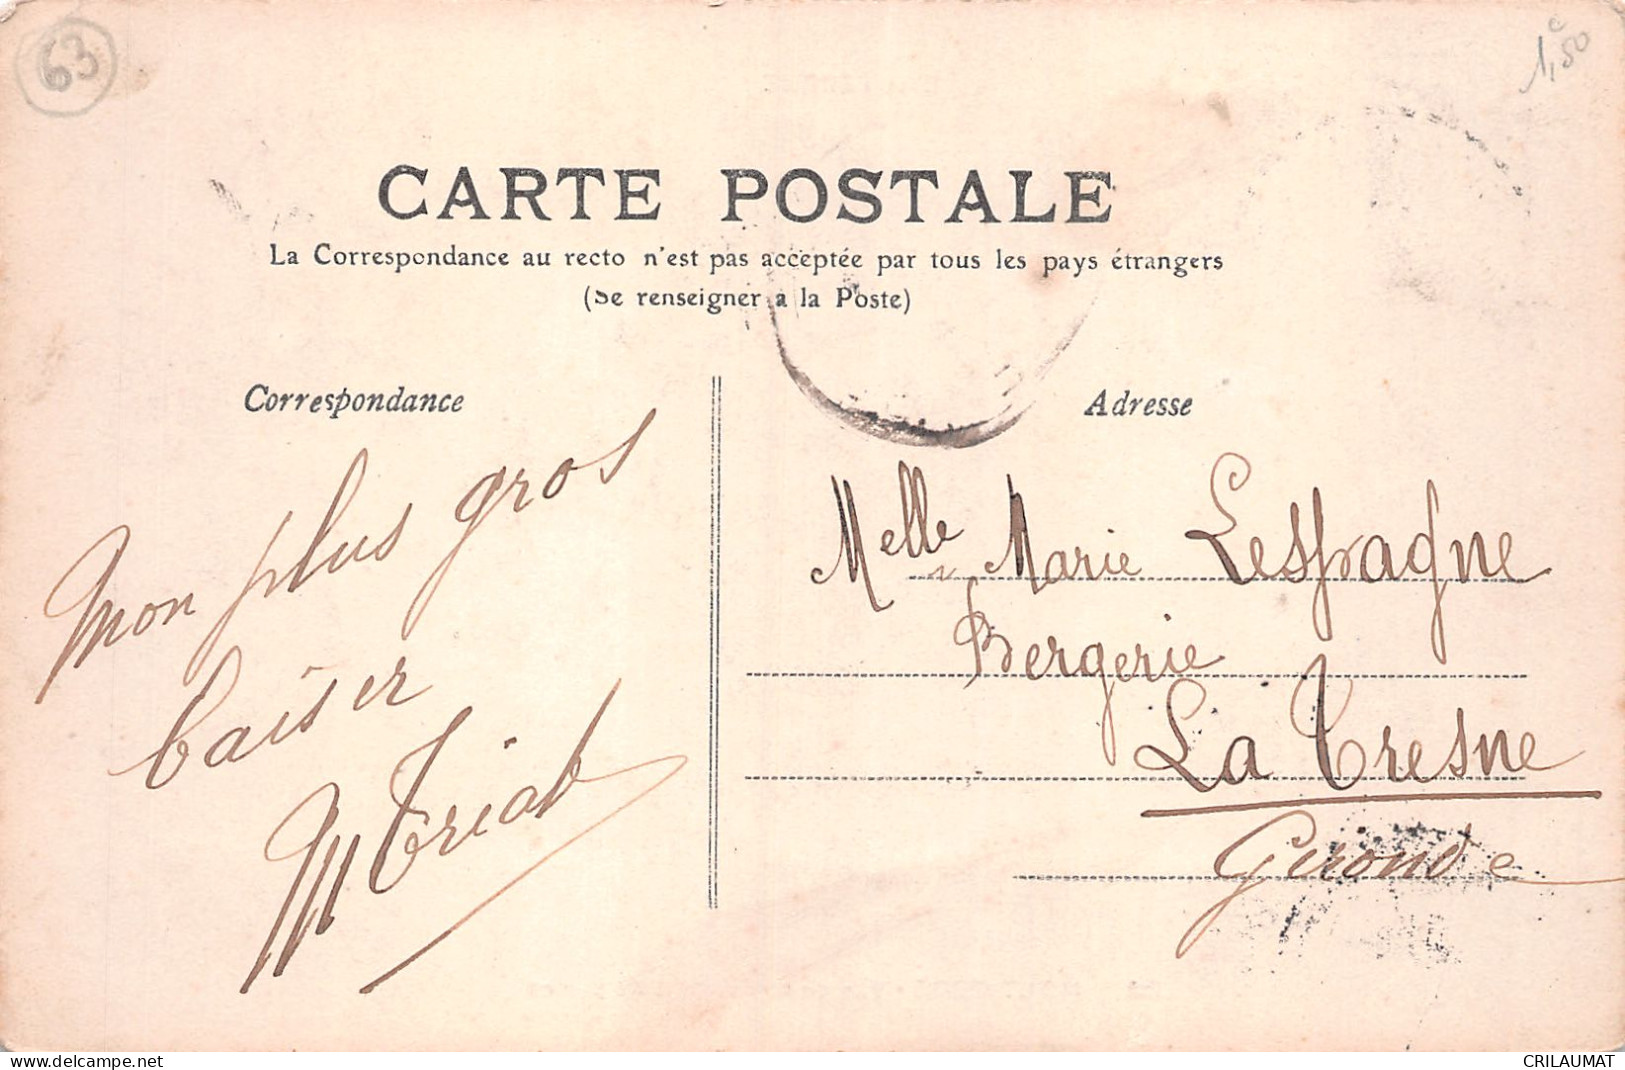 63
1,50
CARTE POSTALE
La Correspondance au recto n'est pas acceptée par tous les pays étrangers
(Se renseigner à la Poste)
Correspondance
Adresse
Mon plus gros
baiser
M Triat
Melle Marie Lespagne
Bergerie
La Tresne
Gironde
delcampe.net
CRILAUMAT